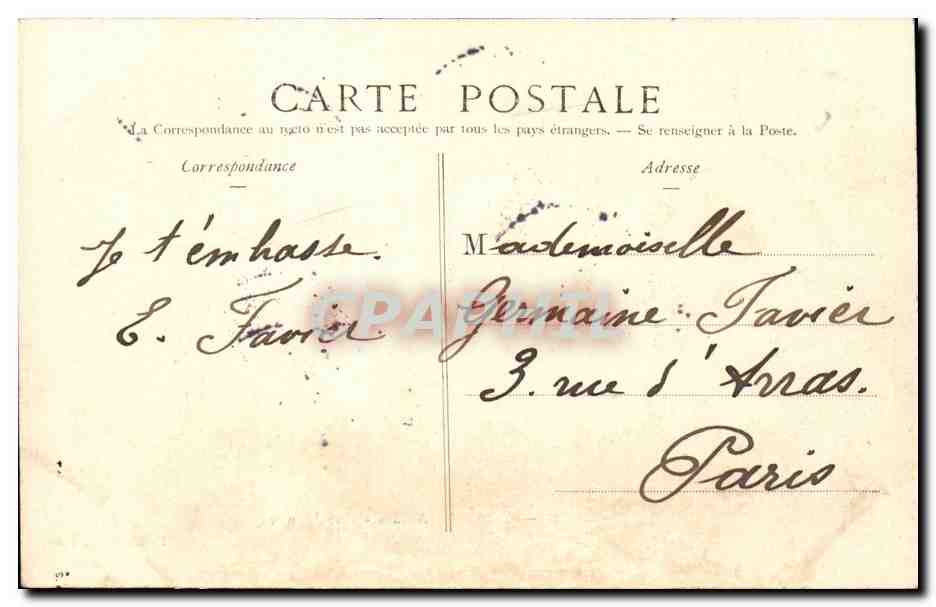 CARTE POSTALE
La Correspondance au recto n'est pas acceptée par tous les pays étrangers. — Se renseigner à la Poste.
Correspondance
Je t'embrasse.
E. Favier
Adresse
Mademoiselle
Germaine Favier
3. rue d'Arras.
Paris
CPAPHIL